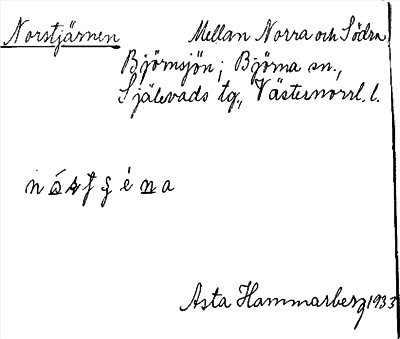 Norstjärnen Mellan Norra och Södra
Björnsjön; Björna sn.,
Själevads tg., Västernorrl. l.
Asta Hammarberg 1933